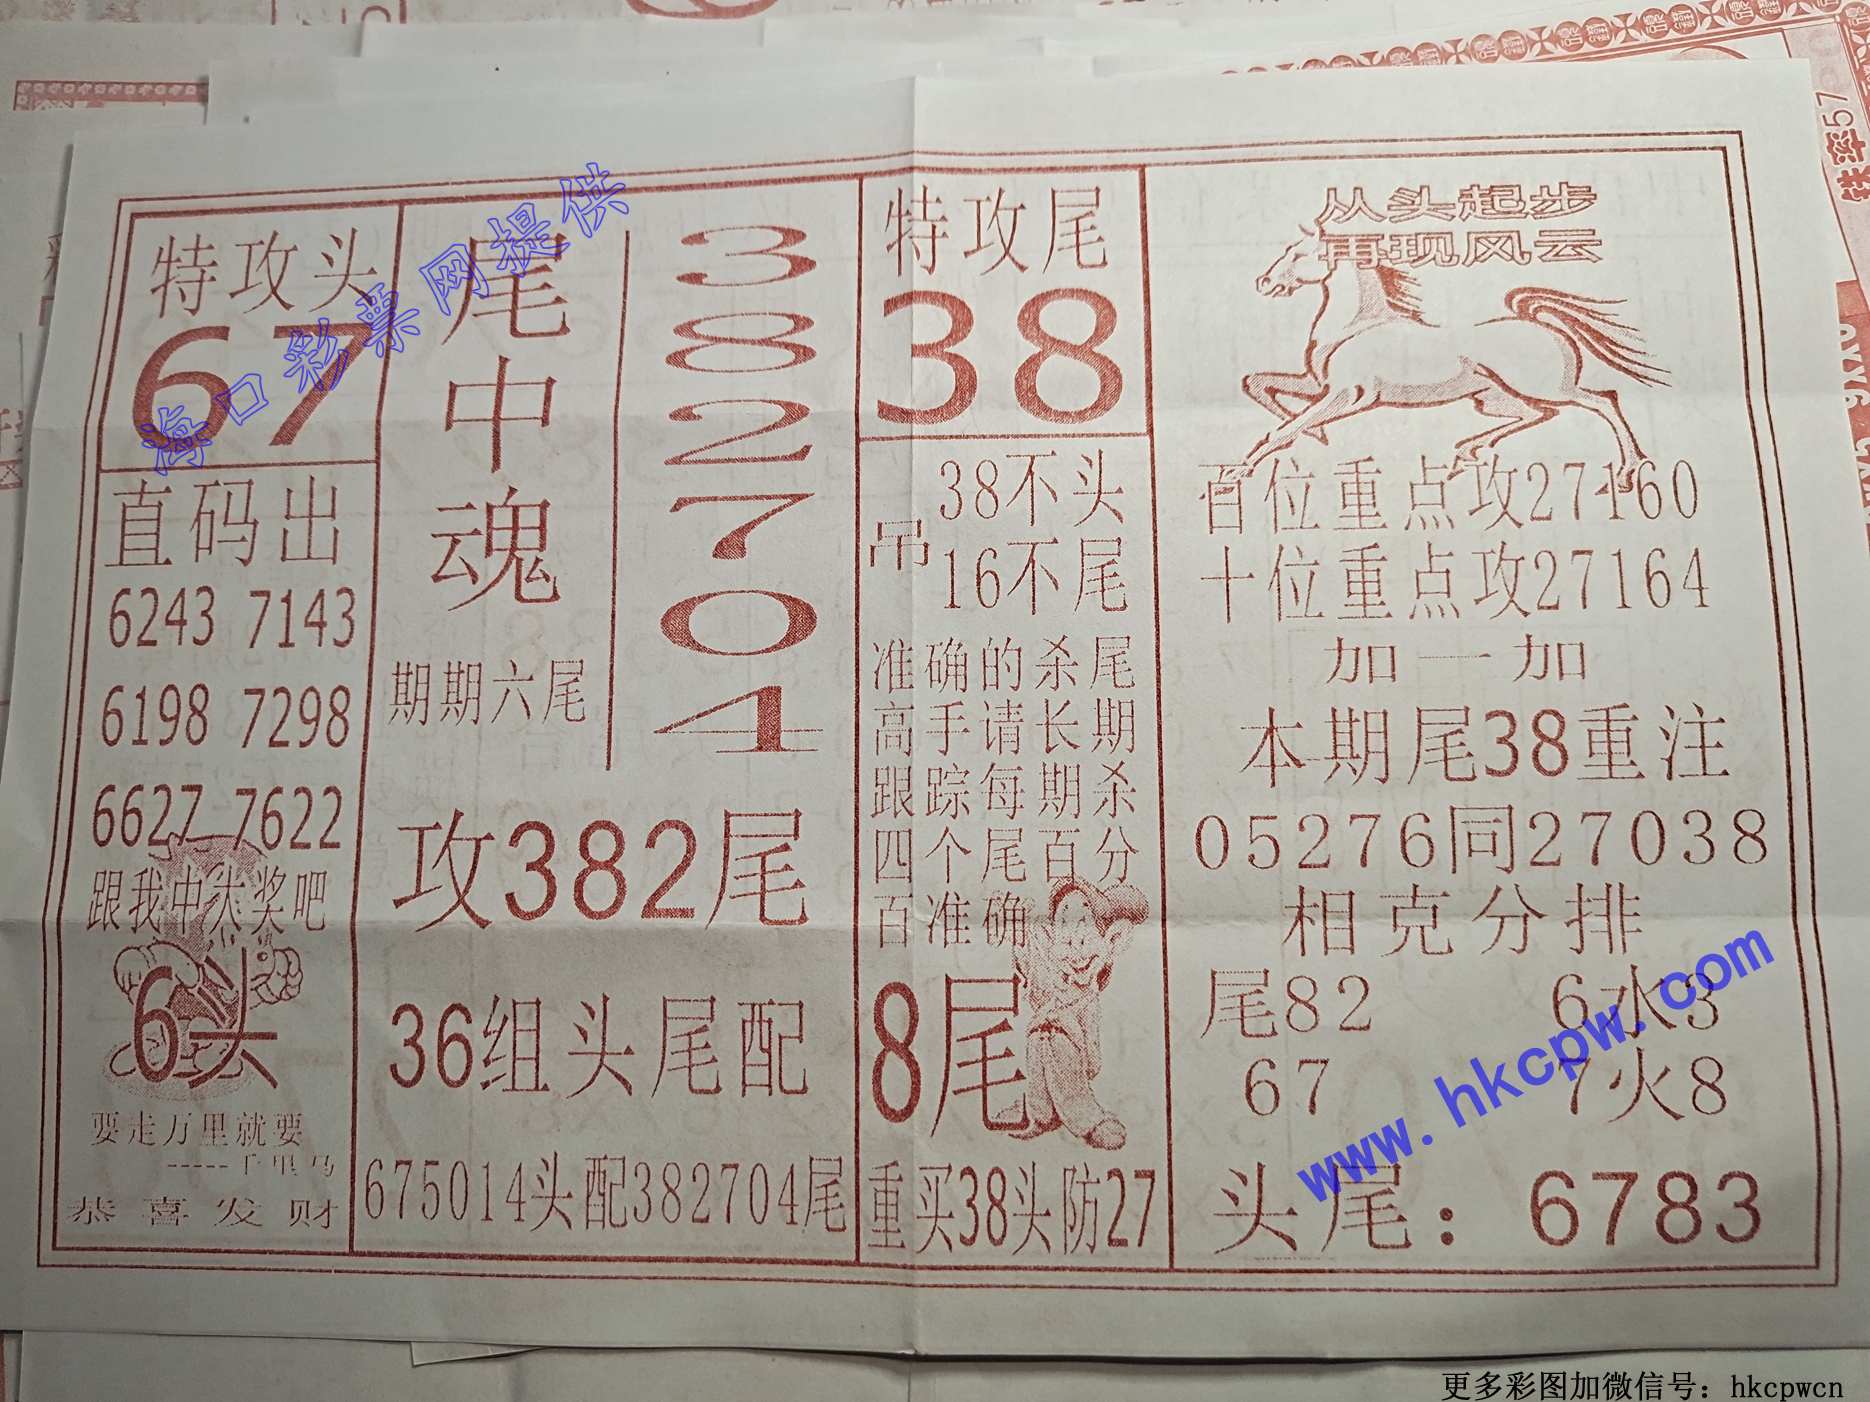 特攻头
67
直码出
6243 7143
6198 7298
6627 7622
跟我中大奖吧
6头
要走万里就要
-----千里马
恭喜发财
尾中魂
期期六尾
382704
攻382尾
36组头尾配
675014头配382704尾
特攻尾
38
吊
38不头
16不尾
准确的杀尾
高手请长期
跟踪每期杀
四个尾百分
百准确
8尾
重买38头防27
从头起步
再现风云
百位重点攻27160
十位重点攻27164
加一加
本期尾38重注
05276同27038
相克分排
尾82 6水3
67 7火8
头尾：6783
海口彩票网提供
www.hkcpw.com
更多彩图加微信号：hkcpwcn